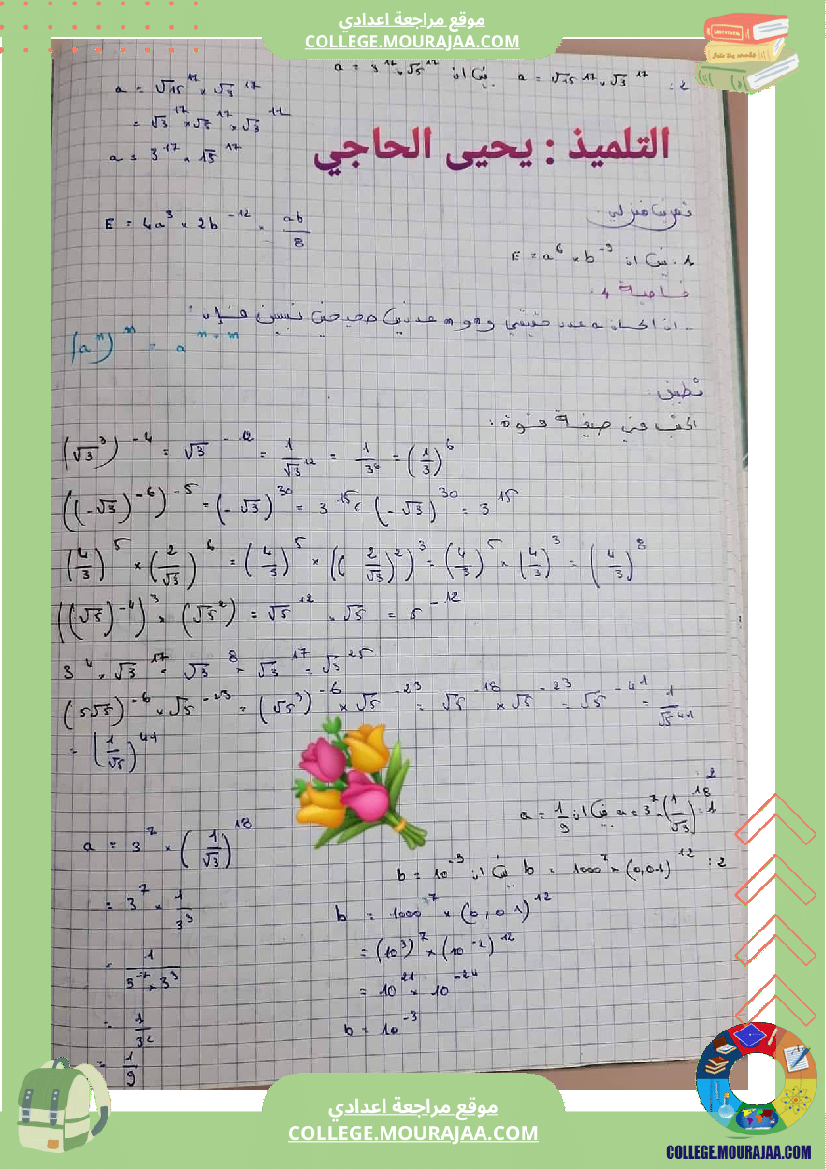 موقع مراجعة اعدادي
COLLEGE.MOURAJAA.COM
2: a = √15¹⁷ × √3¹⁷ بيّن أنّ a = 3¹⁷ × √5¹⁷
a = √15¹⁷ × √3¹⁷
= √3¹⁷ × √5¹⁷ × √3¹⁷
a = 3¹⁷ × √5¹⁷
التلميذ : يحيى الحاجي
تمرين منزلي
E = 4a³ × 2b⁻¹² × ab/8
1. بيّن أنّ E = a⁶ × b⁻⁹
خاصية 4 :
(aⁿ)ᵐ = aⁿ·ᵐ
تطبيق
اكتب في صيغة قوة :
(√3³)⁻⁴ = √3⁻¹² = 1/√3¹² = 1/3⁶ = (1/3)⁶
((-√3)⁻⁶)⁻⁵ = (-√3)³⁰ = 3¹⁵ < (-√3)³⁰ = 3¹⁵
(4/3)⁵ × (2/√3)⁶ = (4/3)⁵ × ((2/√3)²)³ = (4/3)⁵ × (4/3)³ = (4/3)⁸
((√5)⁻⁴)³ × (√5²) = √5¹² × √5 = 5⁻¹²
3⁴ × √3¹⁷ = √3⁸ × √3¹⁷ = √3²⁵
(5√5)⁻⁶ × √5⁻²³ = (√5³)⁻⁶ × √5⁻²³ = √5⁻¹⁸ × √5⁻²³ = √5⁻⁴¹ = 1/√5⁴¹
= (1/√5)⁴¹
2
1: a = 3⁷ × (1/√3)¹⁸ بيّن أنّ a = 1/9
a = 3⁷ × (1/√3)¹⁸
2: b = 1000⁷ × (0,01)¹² بيّن أنّ b = 10⁻³
= 3⁷ × 1/3⁹
b = 1000⁷ × (0,01)¹²
= (10³)⁷ × (10⁻²)¹²
= 1/3⁻⁷ × 3⁹
= 10²¹ × 10⁻²⁴
= 1/3²
b = 10⁻³
= 1/9
موقع مراجعة اعدادي
COLLEGE.MOURAJAA.COM
COLLEGE.MOURAJAA.COM